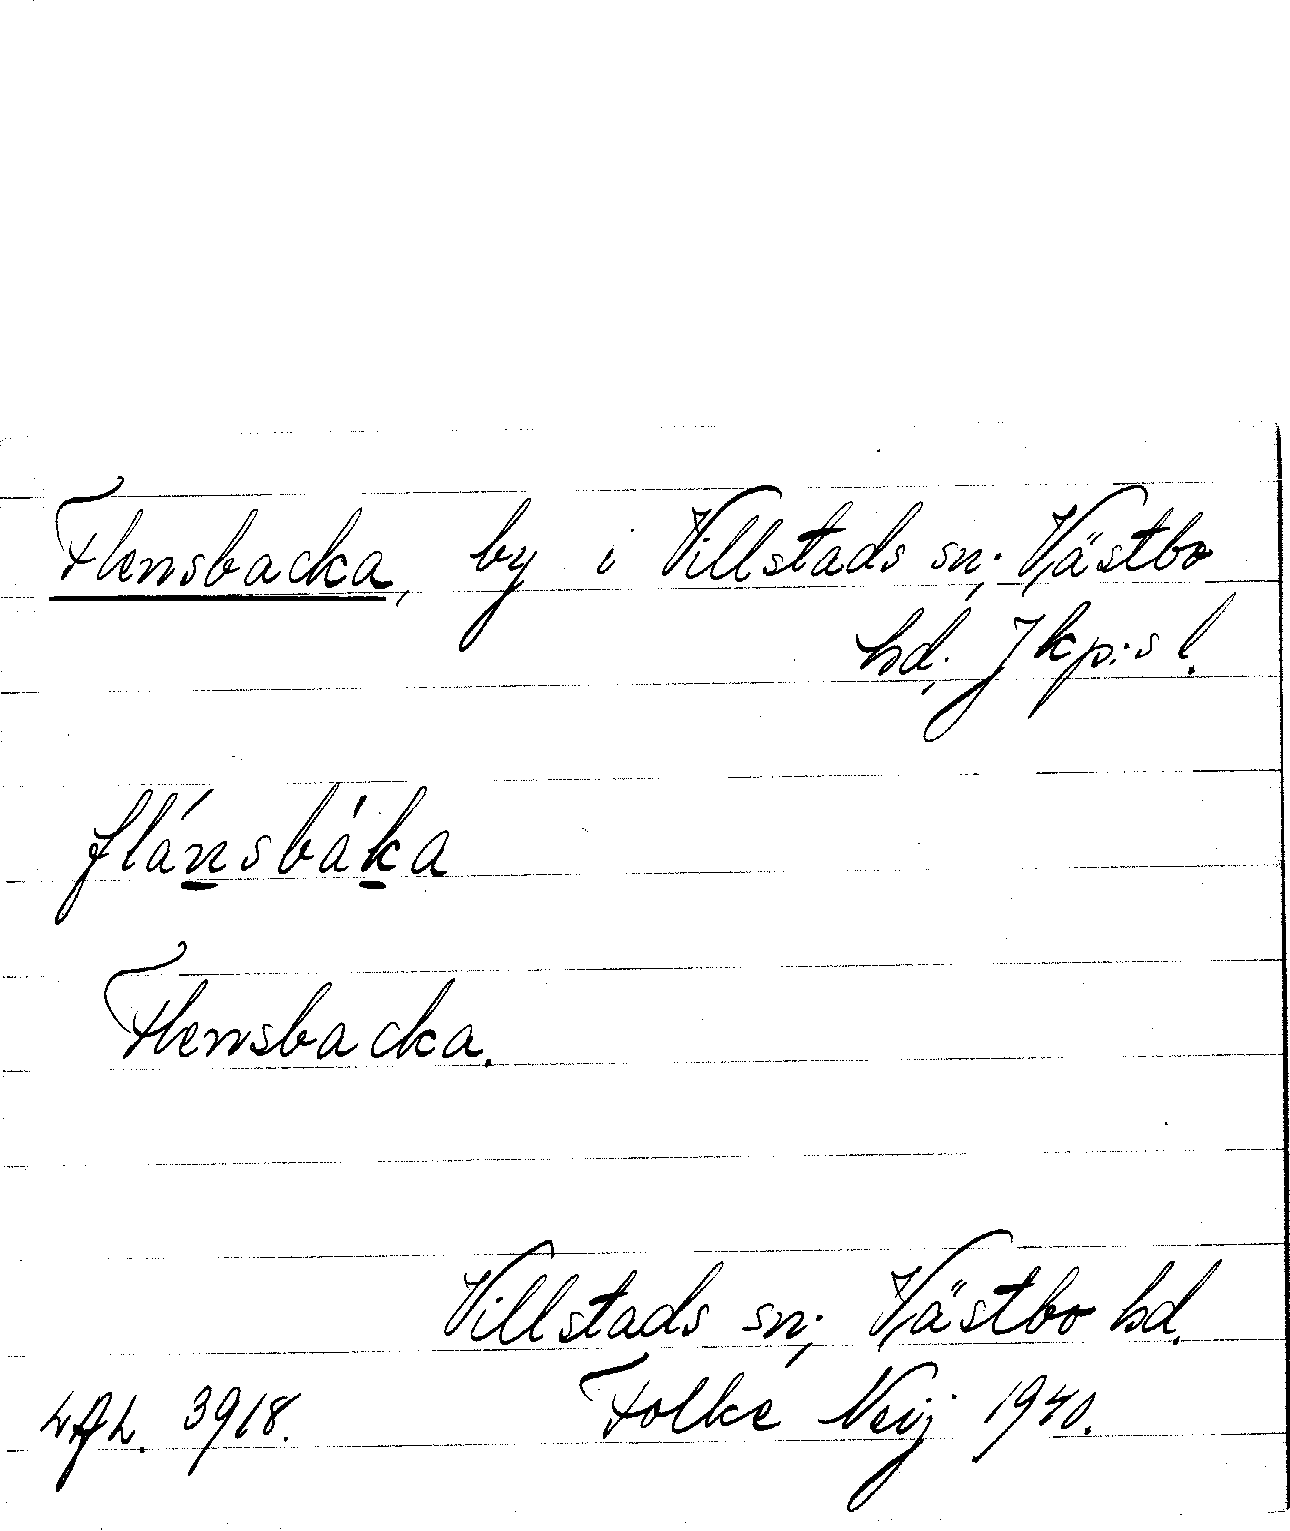 Flensbacka, by i Villstads sn., Västbo
hd., Jkp:s l.
flánsbáka
Flensbacka.
Villstads sn., Västbo hd.
Folke Neij 1940.
3918.